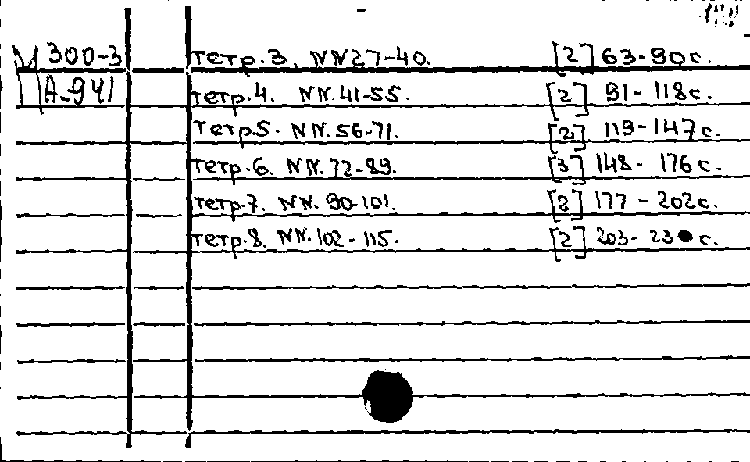 М 300-3 тетр. 3. NN 27-40. [2] 63-90 с.
А-941 тетр. 4. NN. 41-55. [2] 91-118 с.
тетр. 5. NN. 56-71. [2] 119-147 с.
тетр. 6. NN. 72-89. [3] 148-176 с.
тетр. 7. NN. 90-101. [2] 177-202 с.
тетр. 8. NN. 102-115. [2] 203- с.